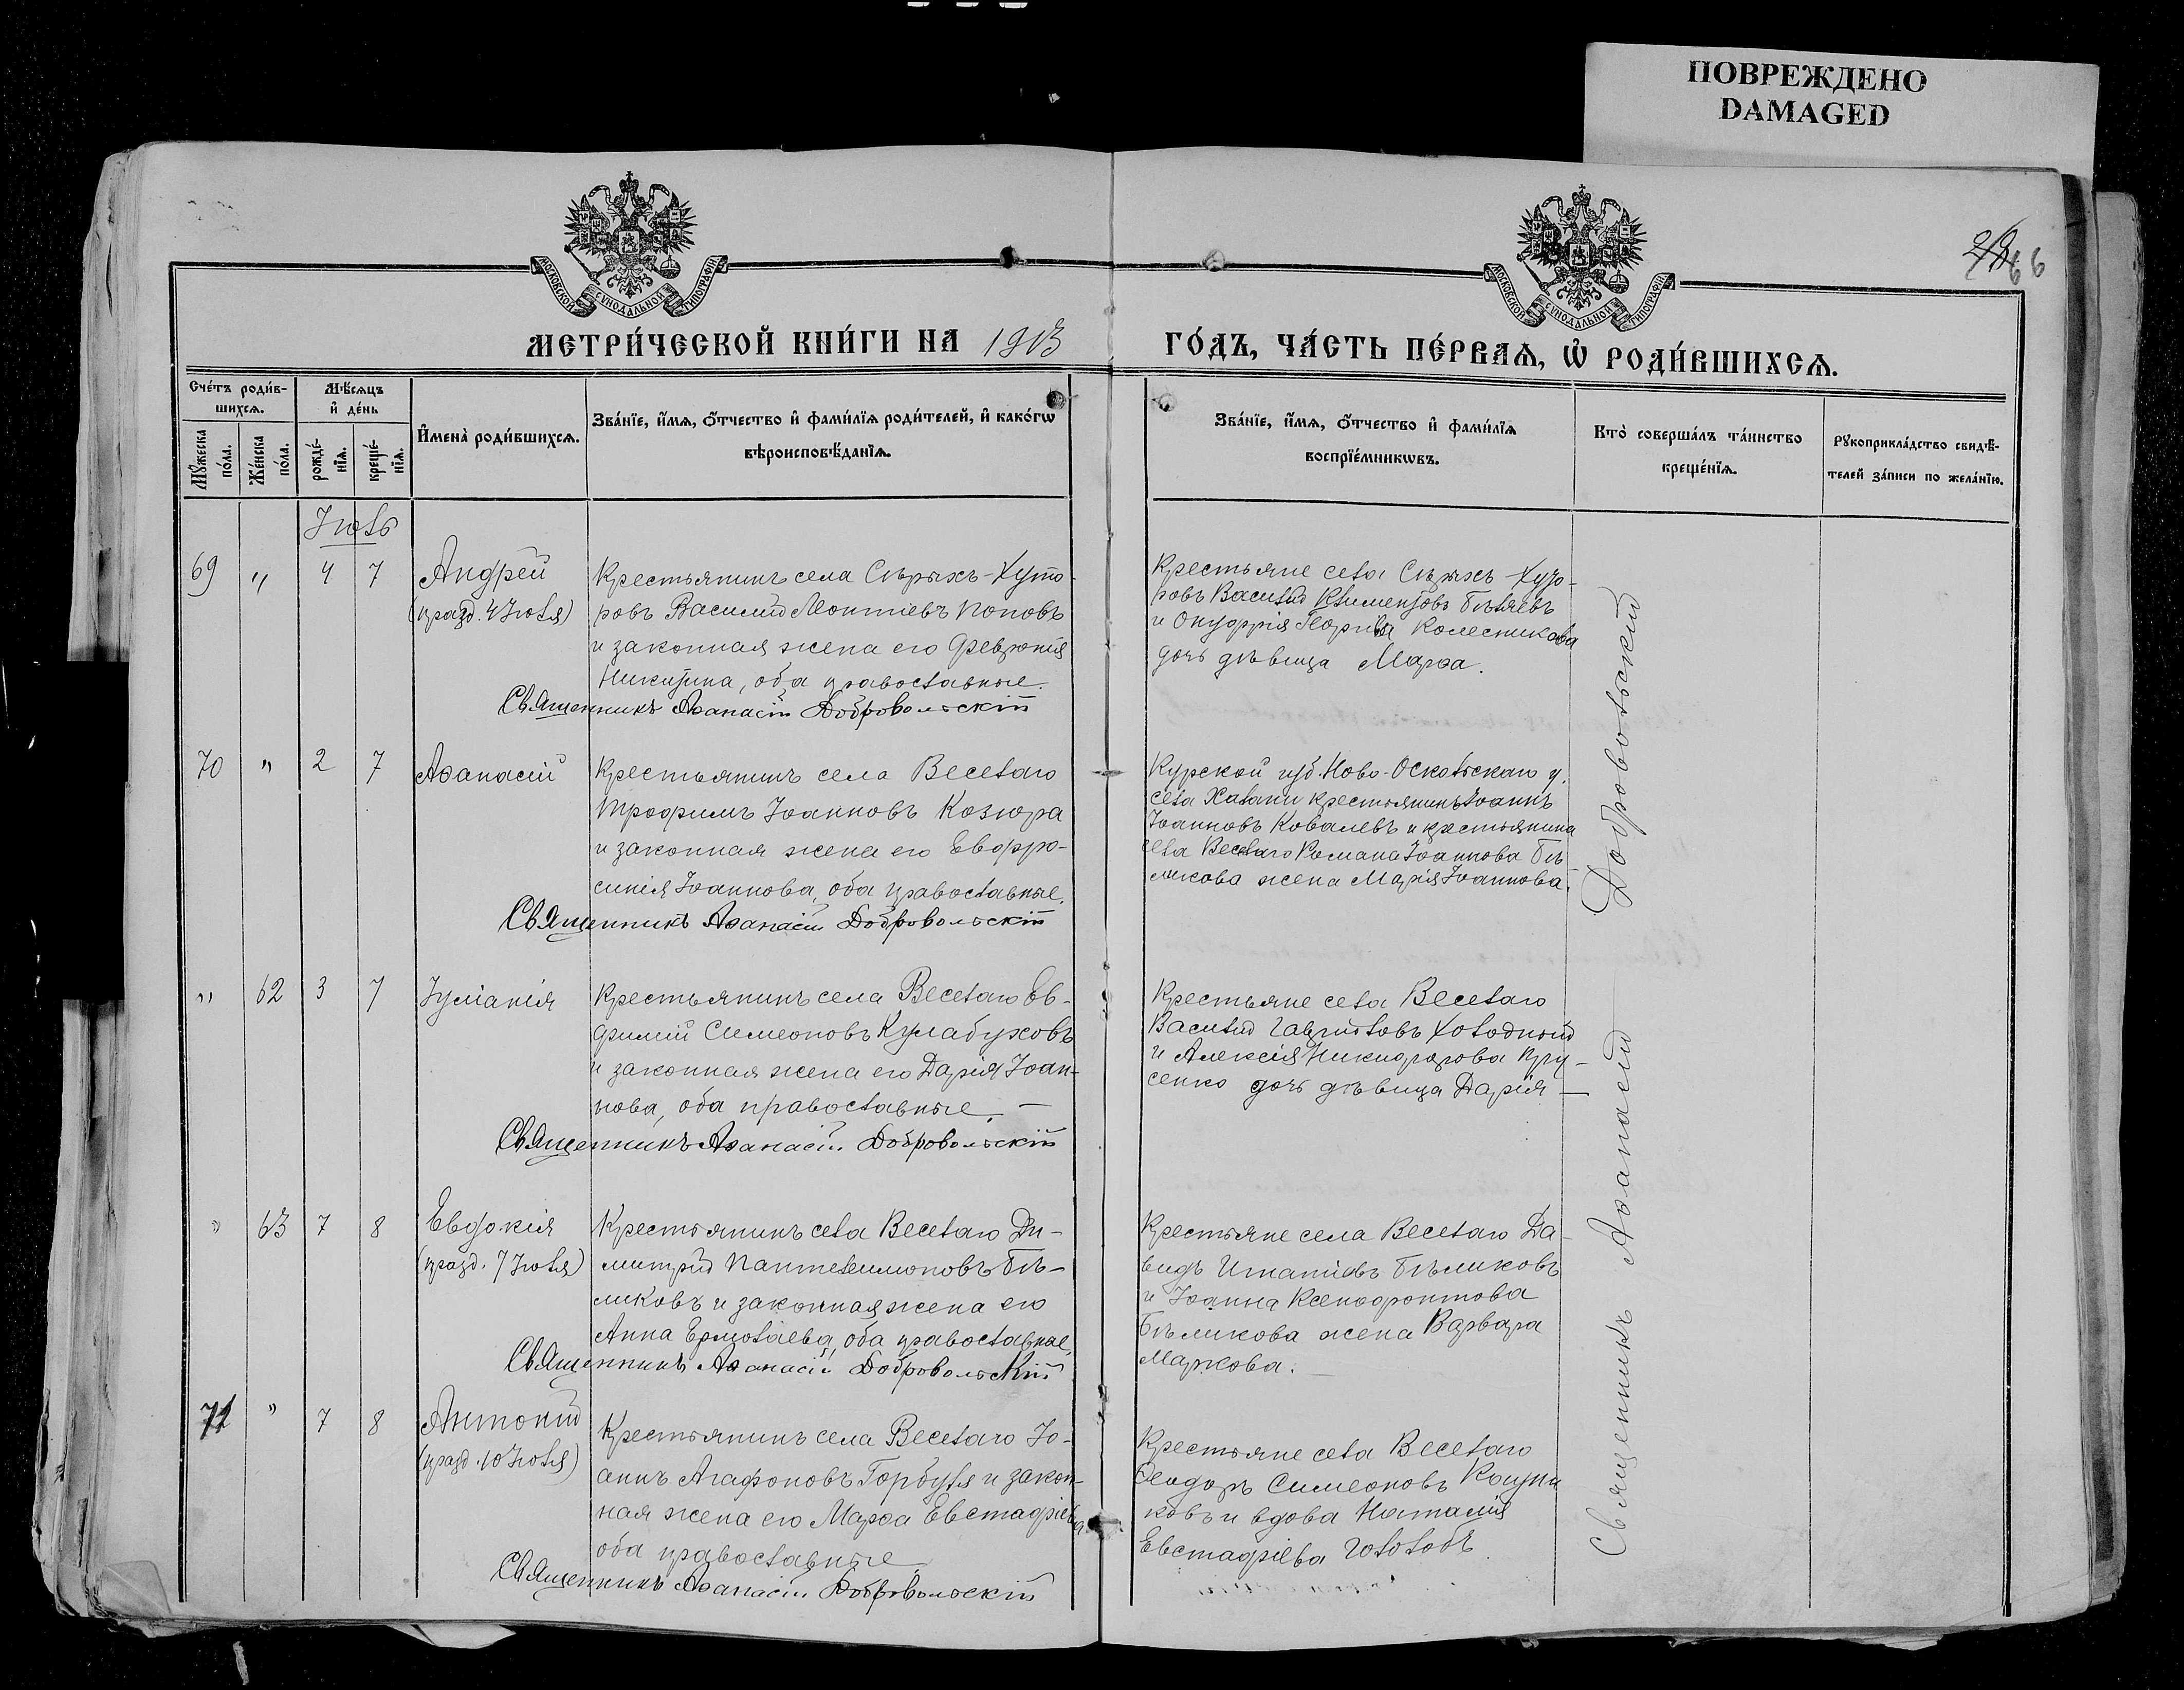 ПОВРЕЖДЕНО
DAMAGED
66
МОСКОВСКОЙ СѴНОДАЛЬНОЙ ТИПОГРАФІИ
МОСКОВСКОЙ СѴНОДАЛЬНОЙ ТИПОГРАФІИ
МЕТРИ́ЧЕСКОЙ КНИ́ГИ НА 1913 ГО́ДЪ, ЧА́СТЬ ПЕ́РВАѦ, Ѡ҆ РОДИ́ВШИХСѦ.
Сче́тъ роди́в-
шихсѧ.
Мѣ́сѧцъ
и҆ де́нь
И҆мена̀ роди́вшихсѧ.
Зва́нїе, и҆́мѧ, ѻ҆́тчество и҆ фами́лїѧ роди́телей, и҆ како́гѡ
вѣроисповѣ́данїѧ.
Зва́нїе, и҆́мѧ, ѻ҆́тчество и҆ фами́лїѧ
воспрїе́мникѡвъ.
Кто̀ соверша́лъ та́инство
креще́нїѧ.
Рꙋкоприкла́дство свидѣ́-
телей за́писи по жела́нїю.
Мꙋ́жеска
по́ла.
Же́нска
по́ла.
рожде́-
нїѧ.
креще́-
нїѧ.
Іюль
69 " 4 7 Андрей
(празд. 4 Іюля)
Крестьянинъ села Сѣрыхъ-Хуто-
ровъ Василій Леонтіевъ Поповъ
и законная жена его Феврюнія
Никитина, оба православные.
Священникъ Аѳанасій Добровольскій
Крестьяне села Сѣрыхъ-Хуто-
ровъ Василій Климентовъ Бѣляевъ
и Онуфрія Георгіева Колесникова
дочь дѣвица Марѳа.
70 " 2 7 Аѳанасій
Крестьянинъ села Веселаго
Трофимъ Іоанновъ Козюра
и законная жена его Евфро-
синія Іоаннова, оба православные.
Священникъ Аѳанасій Добровольскій
Курской губ. Ново-Оскольскаго у.
села Халани крестьянинъ Іоаннъ
Іоанновъ Ковалевъ и крестьянина
села Веселаго Романа Іоаннова Бѣ
ликова жена Марія Іоаннова.
" 62 3 7 Іуліанія
Крестьянинъ села Веселаго Ев-
фимій Симеоновъ Кулабуховъ
и законная жена его Дарія Іоан-
нова, оба православные. —
Священникъ Аѳанасій Добровольскій
Крестьяне села Веселаго
Василій Гавріиловъ Холодный
и Алексія Никифорова Пру-
сенко дочь дѣвица Дарія —
" 63 7 8 Евдокія
(празд. 7 Іюля)
Крестьянинъ села Веселаго Ди-
митрій Пантелеимоновъ Бѣ-
ликовъ и законная жена его
Анна Ермолаева, оба православные.
Священникъ Аѳанасій Добровольскій
Крестьяне села Веселаго Да-
видъ Игнатіевъ Бѣликовъ
и Іоанна Ксенофонтова
Бѣликова жена Варвара
Маркова.
71 " 7 8 Антоній
(празд. 10 Іюля)
Крестьянинъ села Веселаго Іо-
аннъ Агафоновъ Горбуля и закон-
ная жена его Марѳа Евстафіева
оба православные
Священникъ Аѳанасій Добровольскій
Крестьяне села Веселаго
Ѳеодоръ Симеоновъ
и вдова Наталія
Евстафіева
Священникъ Аѳанасій Добровольскій